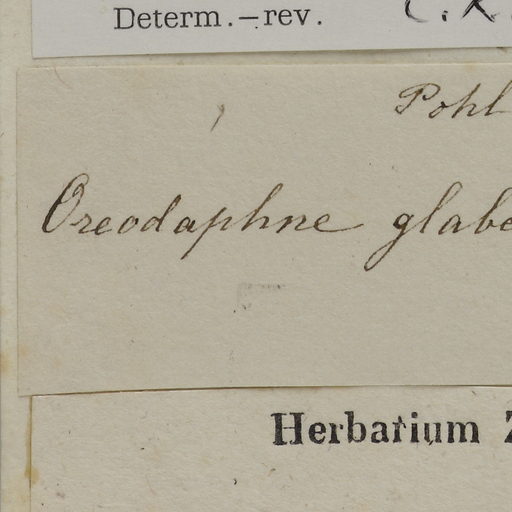 Determ.–rev.
Pohl
Oreodaphne glabe
Herbarium